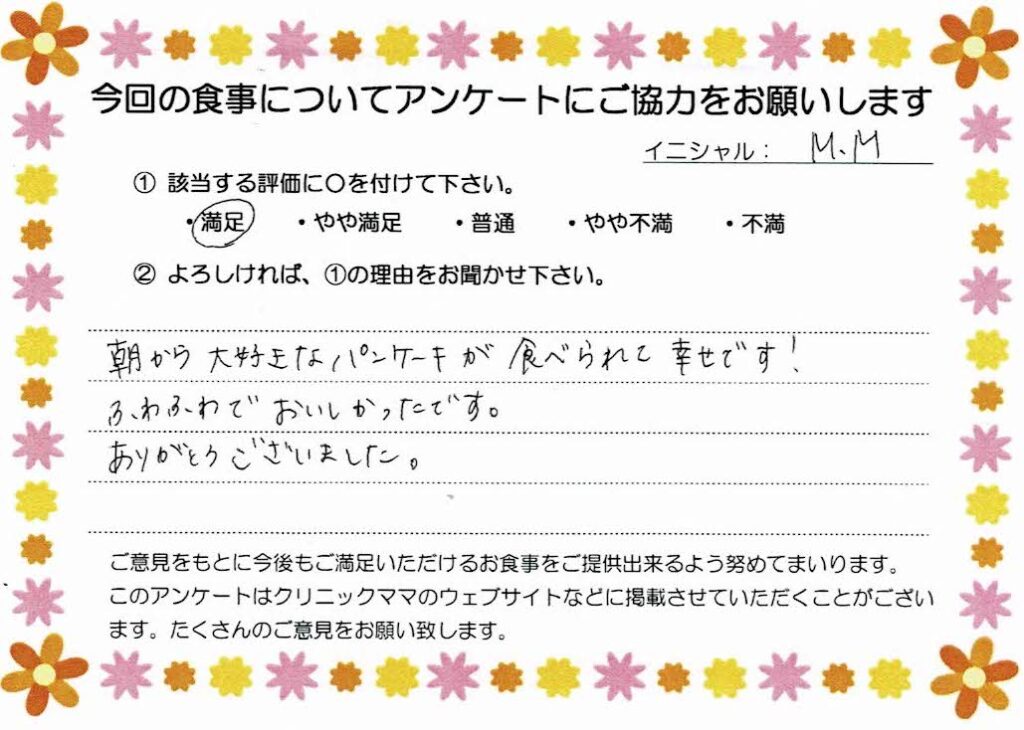 今回の食事についてアンケートにご協力をお願いします
イニシャル： M.M
① 該当する評価に〇を付けて下さい。
・満足 ・やや満足 ・普通 ・やや不満 ・不満
② よろしければ、①の理由をお聞かせ下さい。
朝から大好きなパンケーキが食べられて幸せです！
ふわふわでおいしかったです。
ありがとうございました。
ご意見をもとに今後もご満足いただけるお食事をご提供出来るよう努めてまいります。
このアンケートはクリニックママのウェブサイトなどに掲載させていただくことがござい
ます。たくさんのご意見をお願い致します。